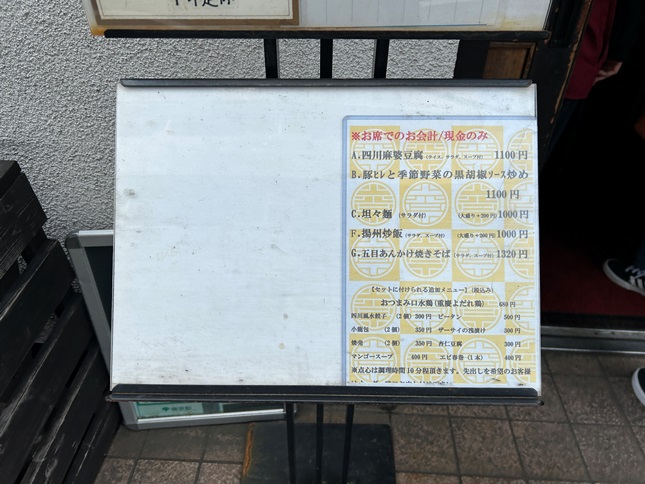 ※お席でのお会計/現金のみ
A.四川麻婆豆腐(ライス、サラダ、スープ付) 1100円
B.豚ヒレと季節野菜の黒胡椒ソース炒め
1100円
C.坦々麺 (サラダ付) (大盛り+200円) 1000円
F.揚州炒飯 (サラダ、スープ付) (大盛り+200円) 1000円
G.五目あんかけ焼きそば (サラダ、スープ付) 1320円
【セットに付けられる追加メニュー】(税込み)
おつまみ口水鶏(重慶よだれ鶏) 680円
四川風水餃子 (2個) 300円 ピータン 500円
小籠包 (2個) 350円 ザーサイの浅漬け 300円
焼売 (2個) 350円 杏仁豆腐 300円
マンゴースープ 400円 エビ春巻(1本) 400円
※点心は調理時間10分程頂きます。先出しを希望のお客様